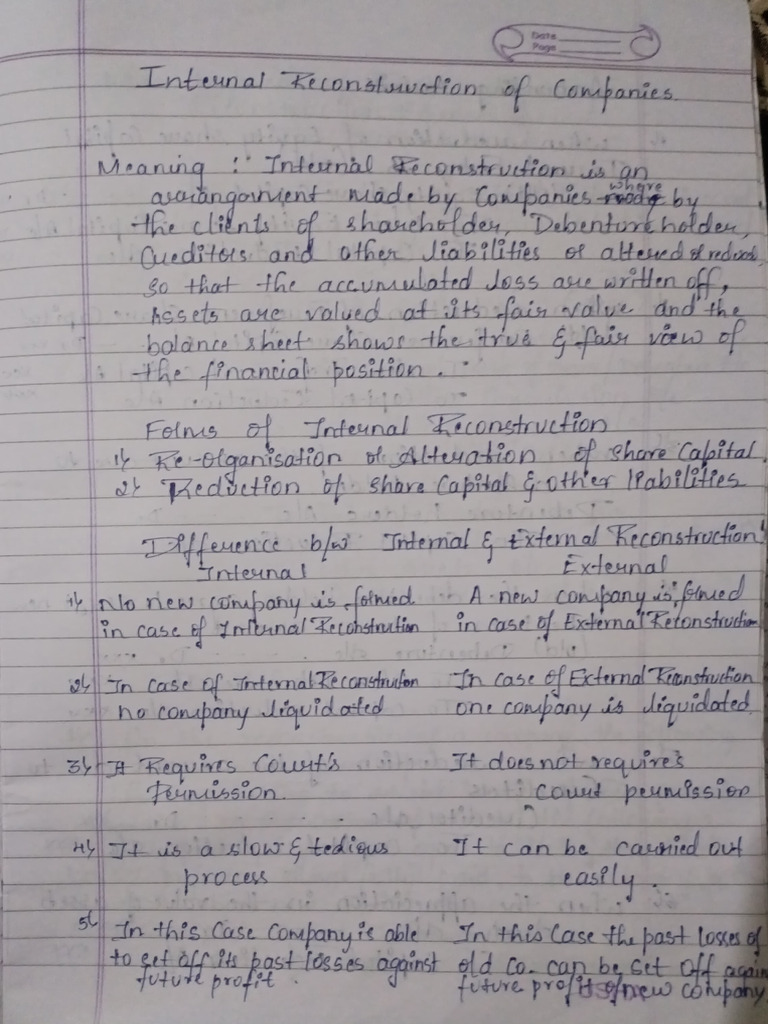 Date
Page
Internal Reconstruction of Companies.
Meaning : Internal Reconstruction is an
arrangement made by Companies where by
the clients of shareholder, Debenture holder,
Creditors and other liabilities or altered or reduced,
so that the accumulated loss are written off,
Assets are valued at its fair value and the
balance sheet shows the true & fair view of
the financial position.
Forms of Internal Reconstruction
1) Re-organisation or Alteration of share Capital
2) Reduction of share Capital & other liabilities
Difference b/w Internal & External Reconstruction
Internal External
1) No new company is formed A new company is formed
in case of Internal Reconstruction in case of External Reconstruction
2) In case of Internal Reconstruction In case of External Reconstruction
no company liquidated one company is liquidated
3) It Requires Court's It does not require's
Permission. Court permission
4) It is a slow & tedious It can be carried out
process easily.
5) In this case Company is able In this Case the past losses of
to set off its past losses against old co. can be set off again
future profit. future profit of new company